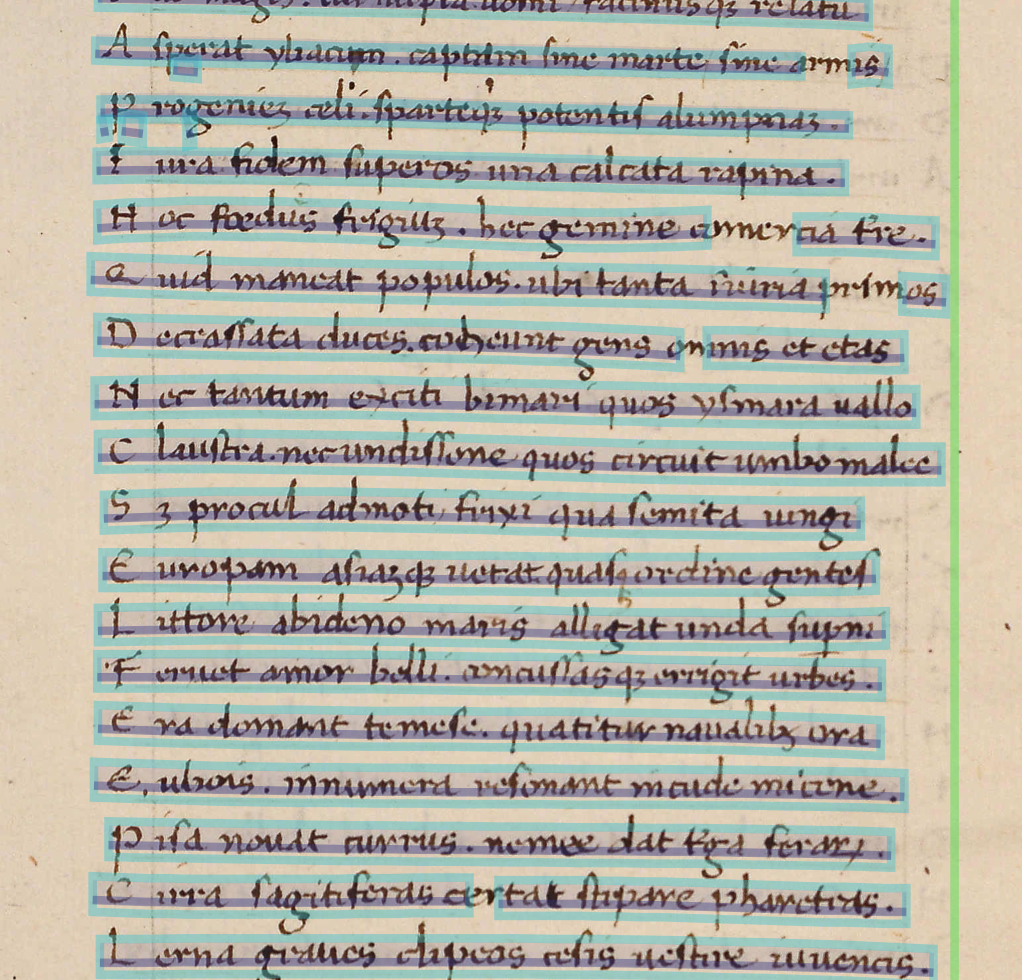 facinusqꝫ relatu
A sperat yliacum . captam sine marte sine armis
P rogenieꝫ celi. sparteqꝫ potentis alumpnaꝫ .
I ura fidem superos una calcata rapina .
H oc foedus frigiuꝫ . hec gemine comercia tre .
Q uid maneat populos . ubi tanta iniuria primos
D ecrassata duces. coheunt gens omnis et etas
N ec tantum exciti bimari quos ysmara uallo
C laustra. nec undissone quos circuit umbo malee
S ꝫ procul admoti frixi qua semita iungi
E uropam asiaꝫqꝫ uetat. quasqꝫ ordine gentes
L ittore abideno maris alligat unda supni
F eruet amor belli. concussasqꝫ errigit urbes .
E ra domant temese. quatitur naualibꝫ ora
E, ubois . innumera resonant incude micene .
P isa nouat currus . nemee dat tga ferarꝝ .
C irra sagitiferas certat stipare pharetras .
L erna graues clipeos cesis uestire iuuencis .